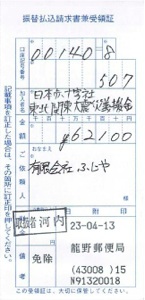 振替払込請求書兼受領証
00140 8
507
日本赤十字社
東北関東大震災義援金
¥62100
有限会社ふじや
取扱者 河内
23-04-13
龍野郵便局
備考
免除
(43008)15
N91320018
記載事項を訂正した場合は、その箇所に訂正印を押してください。
この受領証は、大切に保管してください。